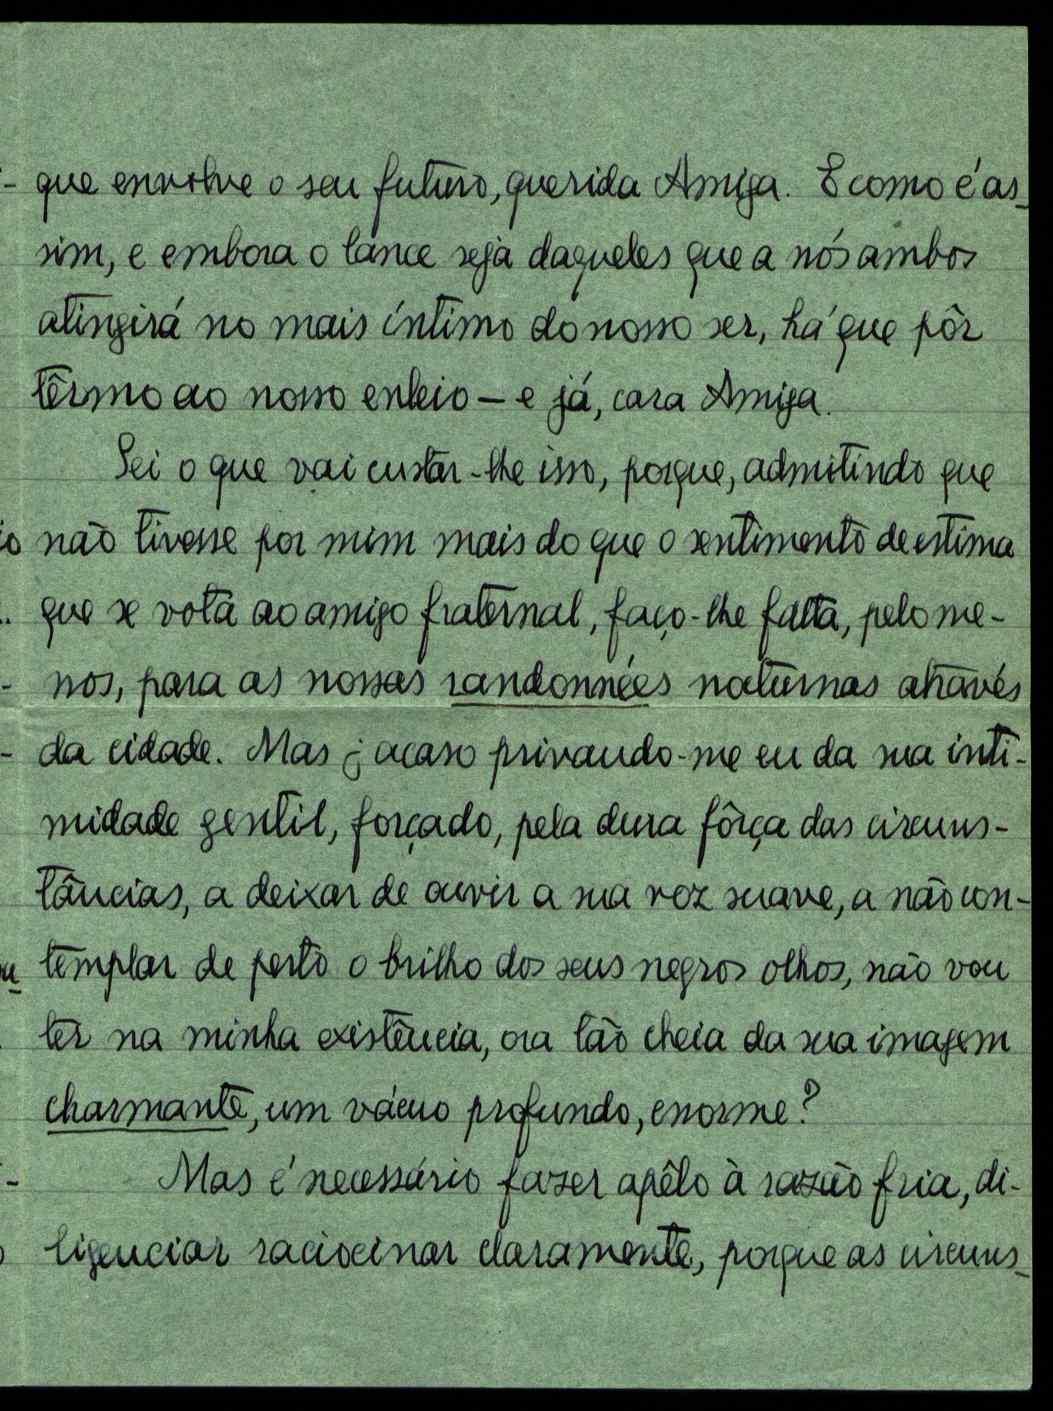 que envolve o seu futuro, querida Amiga. E como é as-
sim, e embora o lance seja daqueles que a nós ambos
atingirá no mais íntimo do nosso ser, há que pôr
têrmo ao nosso enleio — e já, cara Amiga.
Sei o que vai custar-lhe isso, porque, admitindo que
não tivesse por mim mais do que o sentimento de estima
que se vota ao amigo fraternal, faço-lhe falta, pelo me-
nos, para as nossas randonnées noturnas através
da cidade. Mas ¿ acaso privando-me eu da sua inti-
midade gentil, forçado, pela dura fôrça das circuns-
tâncias, a deixar de ouvir a sua voz suave, a não con-
templar de perto o brilho dos seus negros olhos, não vou
ter na minha existência, ora tão cheia da sua imagem
charmante, um vácuo profundo, enorme?
Mas é necessário fazer apêlo à razão fria, di-
ligenciar raciocinar claramente, porque as circuns-